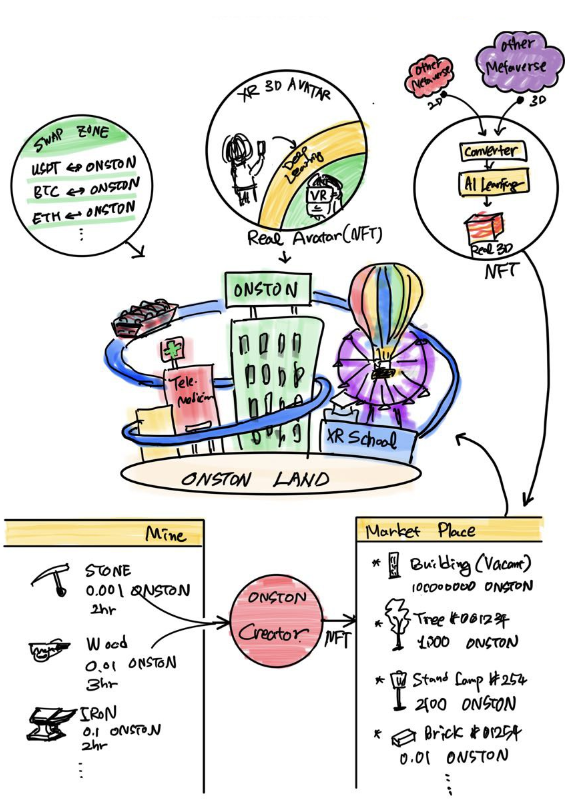 SWAP ZONE
USDT ↔ ONSTON
BTC ↔ ONSTON
ETH ↔ ONSTON
⋮
XR 3D AVATAR
Deep
Learning
VR
Real Avatar(NFT)
Other
Metaverse
2D
Other
Metaverse
3D
Converter
AI Learning
Real 3D
NFT
ONSTON
Tele-
Medicin
XR School
ONSTON LAND
Mine
STONE
0.001 ONSTON
2hr
Wood
0.01 ONSTON
3hr
IRON
0.1 ONSTON
2hr
⋮
ONSTON
Creator
NFT
Market Place
* Building (Vacant)
100000000 ONSTON
* Tree #001234
1,000 ONSTON
* Stand Lamp #254
2100 ONSTON
* Brick #01254
0.01 ONSTON
⋮